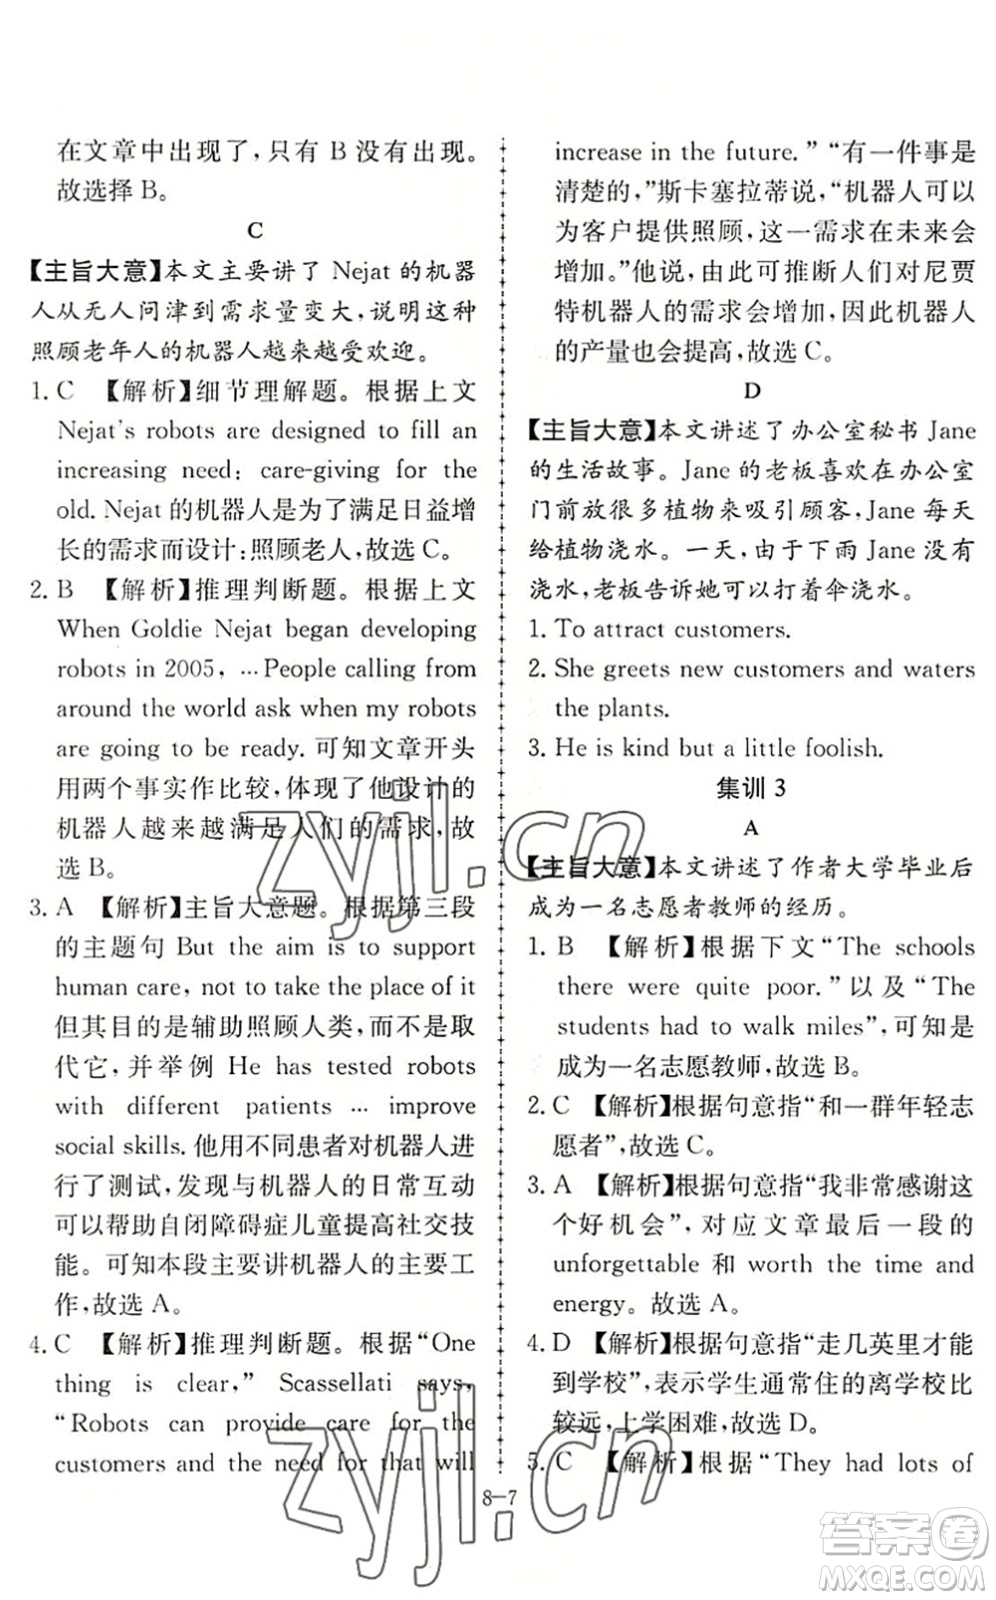 在文章中出现了,只有 B 没有出现。
故选择 B。
C
【主旨大意】本文主要讲了 Nejat 的机器
人从无人问津到需求量变大，说明这种
照顾老年人的机器人越来越受欢迎。
1. C 【解析】细节理解题。根据上文
Nejat's robots are designed to fill an
increasing need: care-giving for the
old. Nejat 的机器人是为了满足日益增
长的需求而设计:照顾老人,故选 C。
2. B 【解析】推理判断题。根据上文
When Goldie Nejat began developing
robots in 2005, …People calling from
around the world ask when my robots
are going to be ready. 可知文章开头
用两个事实作比较,体现了他设计的
机器人越来越满足人们的需求,故
选 B。
3. A 【解析】主旨大意题。根据第三段
的主题句 But the aim is to support
human care, not to take the place of it
但其目的是辅助照顾人类,而不是取
代它,并举例 He has tested robots
with different patients … improve
social skills. 他用不同患者对机器人进
行了测试,发现与机器人的日常互动
可以帮助自闭障碍症儿童提高社交技
能。可知本段主要讲机器人的主要工
作,故选 A。
4. C 【解析】推理判断题。根据“One
thing is clear,” Scassellati says,
“Robots can provide care for the
customers and the need for that will
increase in the future.” “有一件事是
清楚的,”斯卡塞拉蒂说,“机器人可以
为客户提供照顾,这一需求在未来会
增加。”他说,由此可推断人们对尼贾
特机器人的需求会增加,因此机器人
的产量也会提高,故选 C。
D
【主旨大意】本文讲述了办公室秘书 Jane
的生活故事。Jane 的老板喜欢在办公室
门前放很多植物来吸引顾客,Jane 每天
给植物浇水。一天,由于下雨 Jane 没有
浇水,老板告诉她可以打着伞浇水。
1. To attract customers.
2. She greets new customers and waters
the plants.
3. He is kind but a little foolish.
集训 3
A
【主旨大意】本文讲述了作者大学毕业后
成为一名志愿者教师的经历。
1. B 【解析】根据下文“The schools
there were quite poor.”以及“The
students had to walk miles”,可知是
成为一名志愿教师,故选 B。
2. C 【解析】根据句意指“和一群年轻志
愿者”,故选 C。
3. A 【解析】根据句意指“我非常感谢这
个好机会”,对应文章最后一段的
unforgettable 和 worth the time and
energy。故选 A。
4. D 【解析】根据句意指“走几英里才能
到学校”,表示学生通常住的离学校比
较远,上学困难,故选 D。
5. C 【解析】根据“They had lots of
8—7
zyjl.cn
zyjl.cn
答案卷
MXQE.COM